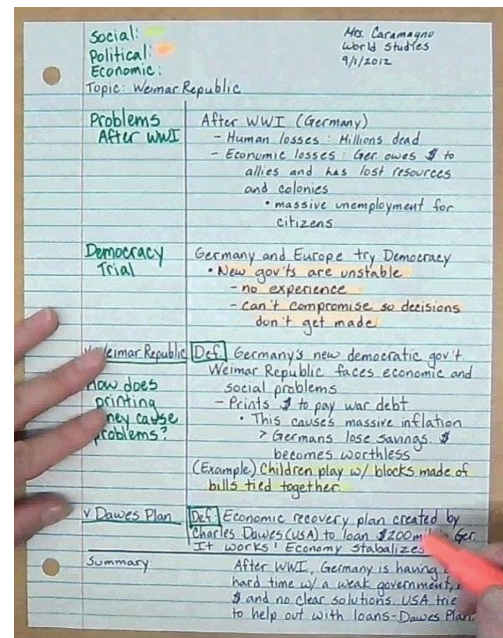 Social:
Political:
Economic:
Topic: Weimar Republic
Mrs. Caramagno
World Studies
9/1/2012
Problems
After WWI
After WWI (Germany)
- Human losses: Millions dead
- Economic losses: Ger owes $ to
allies and has lost resources
and colonies
• massive unemployment for
citizens
Democracy
Trial
Germany and Europe try Democracy
• New gov'ts are unstable
- no experience
- can't compromise so decisions
don't get made
Weimar Republic
Def: Germany's new democratic gov't.
Weimar Republic faces economic and
social problems
- Prints $ to pay war debt
• This causes massive inflation
> Germans lose savings. $
becomes worthless
(Example) Children play w/ blocks made of
bills tied together
How does
printing
cause
problems?
v. Dawes Plan
Def: Economic recovery plan created by
Charles Dawes (USA) to loan $200 Ger.
It works! Economy stabalizes
Summary:
After WWI, Germany is having
hard time w/ a weak government,
$ and no clear solutions. USA
to help out with loans-Dawes Plan